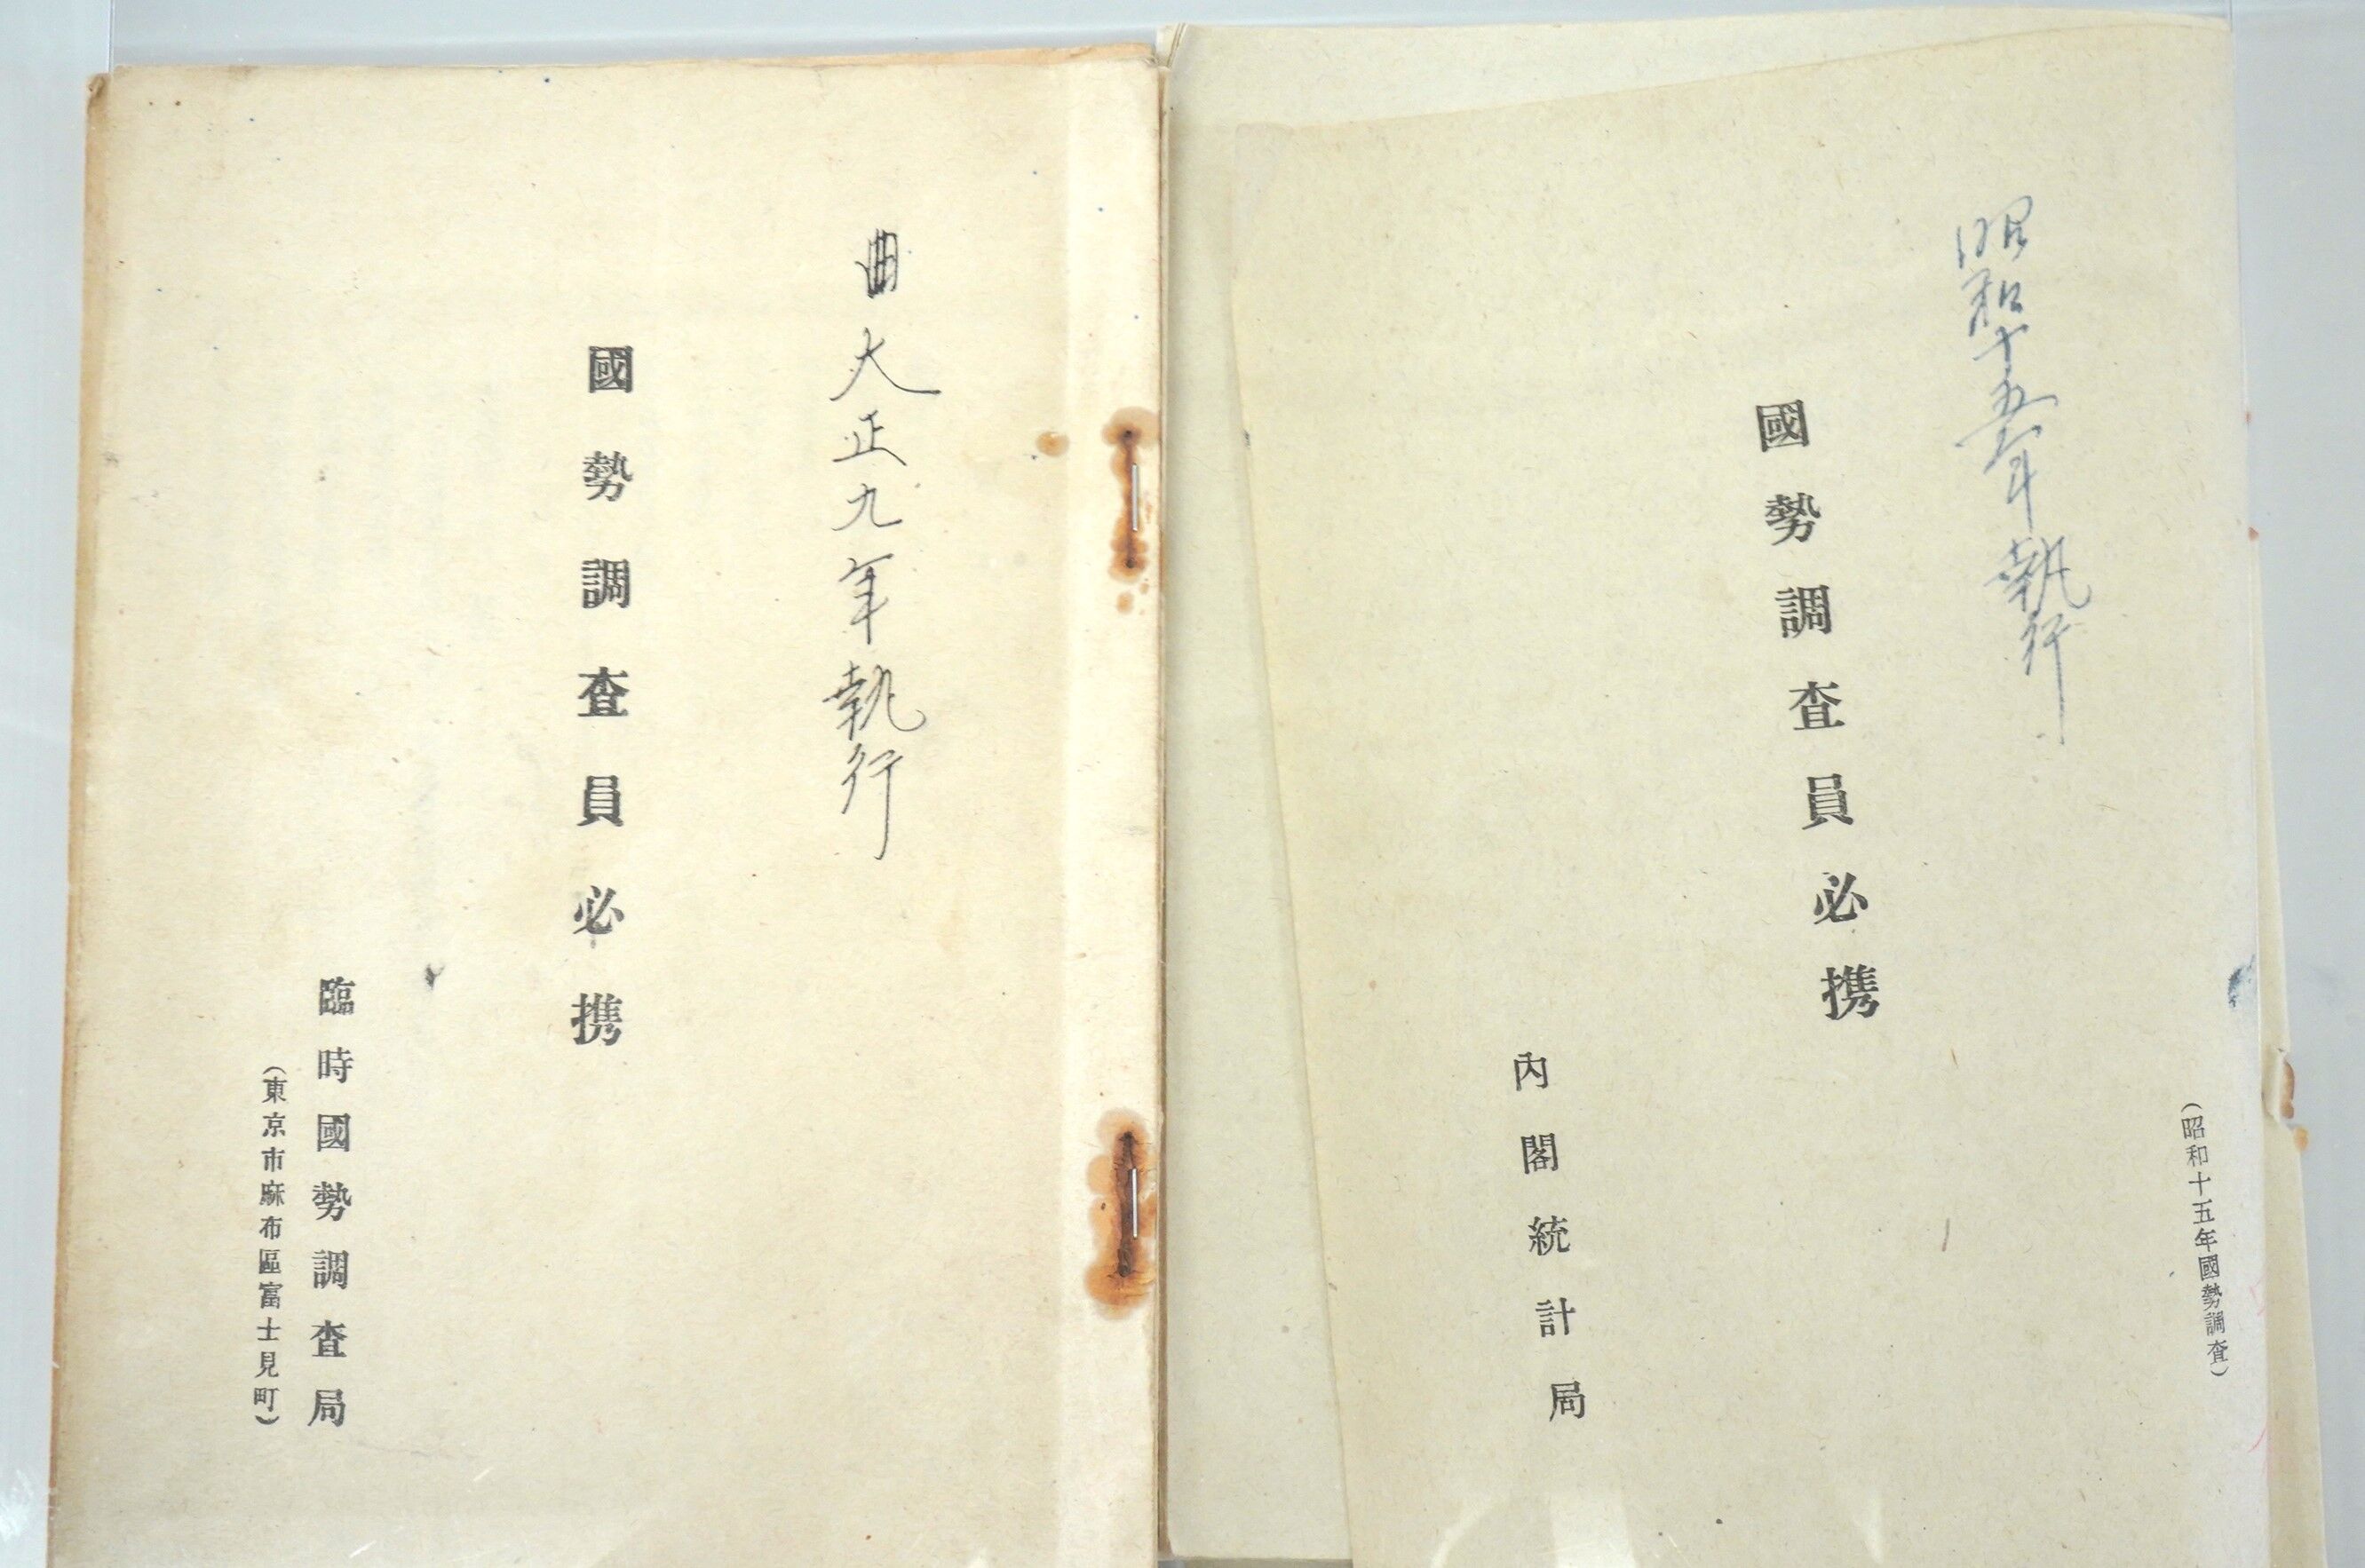 大正九年執行
國勢調査員必携
臨時國勢調査局
（東京市麻布區富士見町）
昭和十五年執行
（昭和十五年國勢調査）
國勢調査員必携
內閣統計局